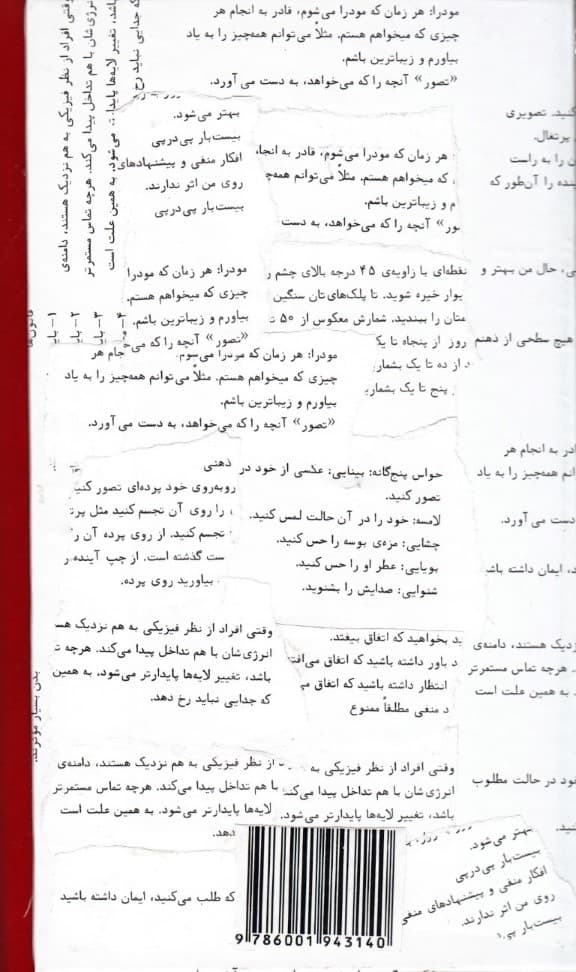 مودرا: هر زمان که مودرا می‌شوم، قادر به انجام هر
چیزی که میخواهم هستم. مثلاً می‌توانم همه‌چیز را به یاد
بیاورم و زیباترین باشم.
«تصور» آنچه را که می‌خواهد، به دست می آورد.
وقتی افراد از نظر فیزیکی به هم نزدیک هستند، دامنه‌ی
انرژی‌شان با هم تداخل پیدا می‌کند. هرچه تماس مستمرتر
باشد، تغییر لایه‌ها پایدارتر می‌شود. به همین علت است
که جدایی نباید رخ
کنید. تصویری
پرتغال.
ن را به راست
ینده را آن‌طور که
بهتر می‌شود.
بیست‌بار پی‌درپی
افکار منفی و پیشنهادهای
روی من اثر ندارند.
بیست‌بار پی‌درپی
هر زمان که مودرا می‌شوم، قادر به انجا
که میخواهم هستم. مثلاً می‌توانم همه‌چ
م و زیباترین باشم.
ور» آنچه را که می‌خواهد، به دست
ی، حال من بهتر و
هیچ سطحی از ذهنم
نقطه‌ای با زاویه‌ی ۴۵ درجه بالای چشم ر
یوار خیره شوید. تا پلک‌های‌تان سنگین
متان را ببندید. شمارش معکوس از ۵۰ ت
روز از پنجاه تا یک
از ده تا یک بشمار
پنج تا یک بشماری
مودرا: هر زمان که مودرا
چیزی که میخواهم هستم.
بیاورم و زیباترین باشم.
«تصور» آنچه را که می‌خ
۱-
۲-
۳-
۴-
مودرا: هر زمان که مودرا می‌شوم، جام هر
چیزی که میخواهم هستم. مثلاً می‌توانم همه‌چیز را به یاد
بیاورم و زیباترین باشم.
«تصور» آنچه را که می‌خواهد، به دست می آورد.
ادر به انجام هر
انم همه‌چیز را به یاد
دست می آورد.
د، ایمان داشته باش
حواس پنج‌گانه: بینایی: عکسی از خود در ذهنی
تصور کنید.
لامسه: خود را در آن حالت لمس کنید.
چشایی: مزه‌ی بوسه را حس کنید.
بویایی: عطر او را حس کنید.
شنوایی: صدایش را بشنوید.
روبه‌روی خود پرده‌ای تصور کنید
را روی آن تجسم کنید مثل پرت
تجسم کنید. از روی پرده آن ر
ست گذشته است. از چپ آینده ر
بیاورید روی پرده.
وقتی افراد از نظر فیزیکی به هم نزدیک هس
انرژی‌شان با هم تداخل پیدا می‌کند. هرچه ت
باشد، تغییر لایه‌ها پایدارتر می‌شود. به همین
که جدایی نباید رخ دهد.
ید بخواهید که اتفاق بیفتد.
د باور داشته باشید که اتفاق می‌افت
انتظار داشته باشید که اتفاق می
د منفی مطلقاً ممنوع
زدیک هستند، دامنه‌ی
هرچه تماس مستمرتر
به همین علت است
بدن بسیار موثرند.
وقتی افراد از نظر فیزیکی به از نظر فیزیکی به هم نزدیک هستند، دامنه‌ی
انرژی‌شان با هم تداخل پیدا می‌کند با هم تداخل پیدا می‌کند. هرچه تماس مستمرتر
باشد، تغییر لایه‌ها پایدارتر می‌شود. لایه‌ها پایدارتر می‌شود. به همین علت است
دهد.
خود در حالت مطلوب
که طلب می‌کنید، ایمان داشته باشید
بهتر می‌شود.
بیست‌بار پی‌درپی
افکار منفی و پیشنهادهای منفی
روی من اثر ندارند.
بیست‌بار پی‌
9 786001 943140